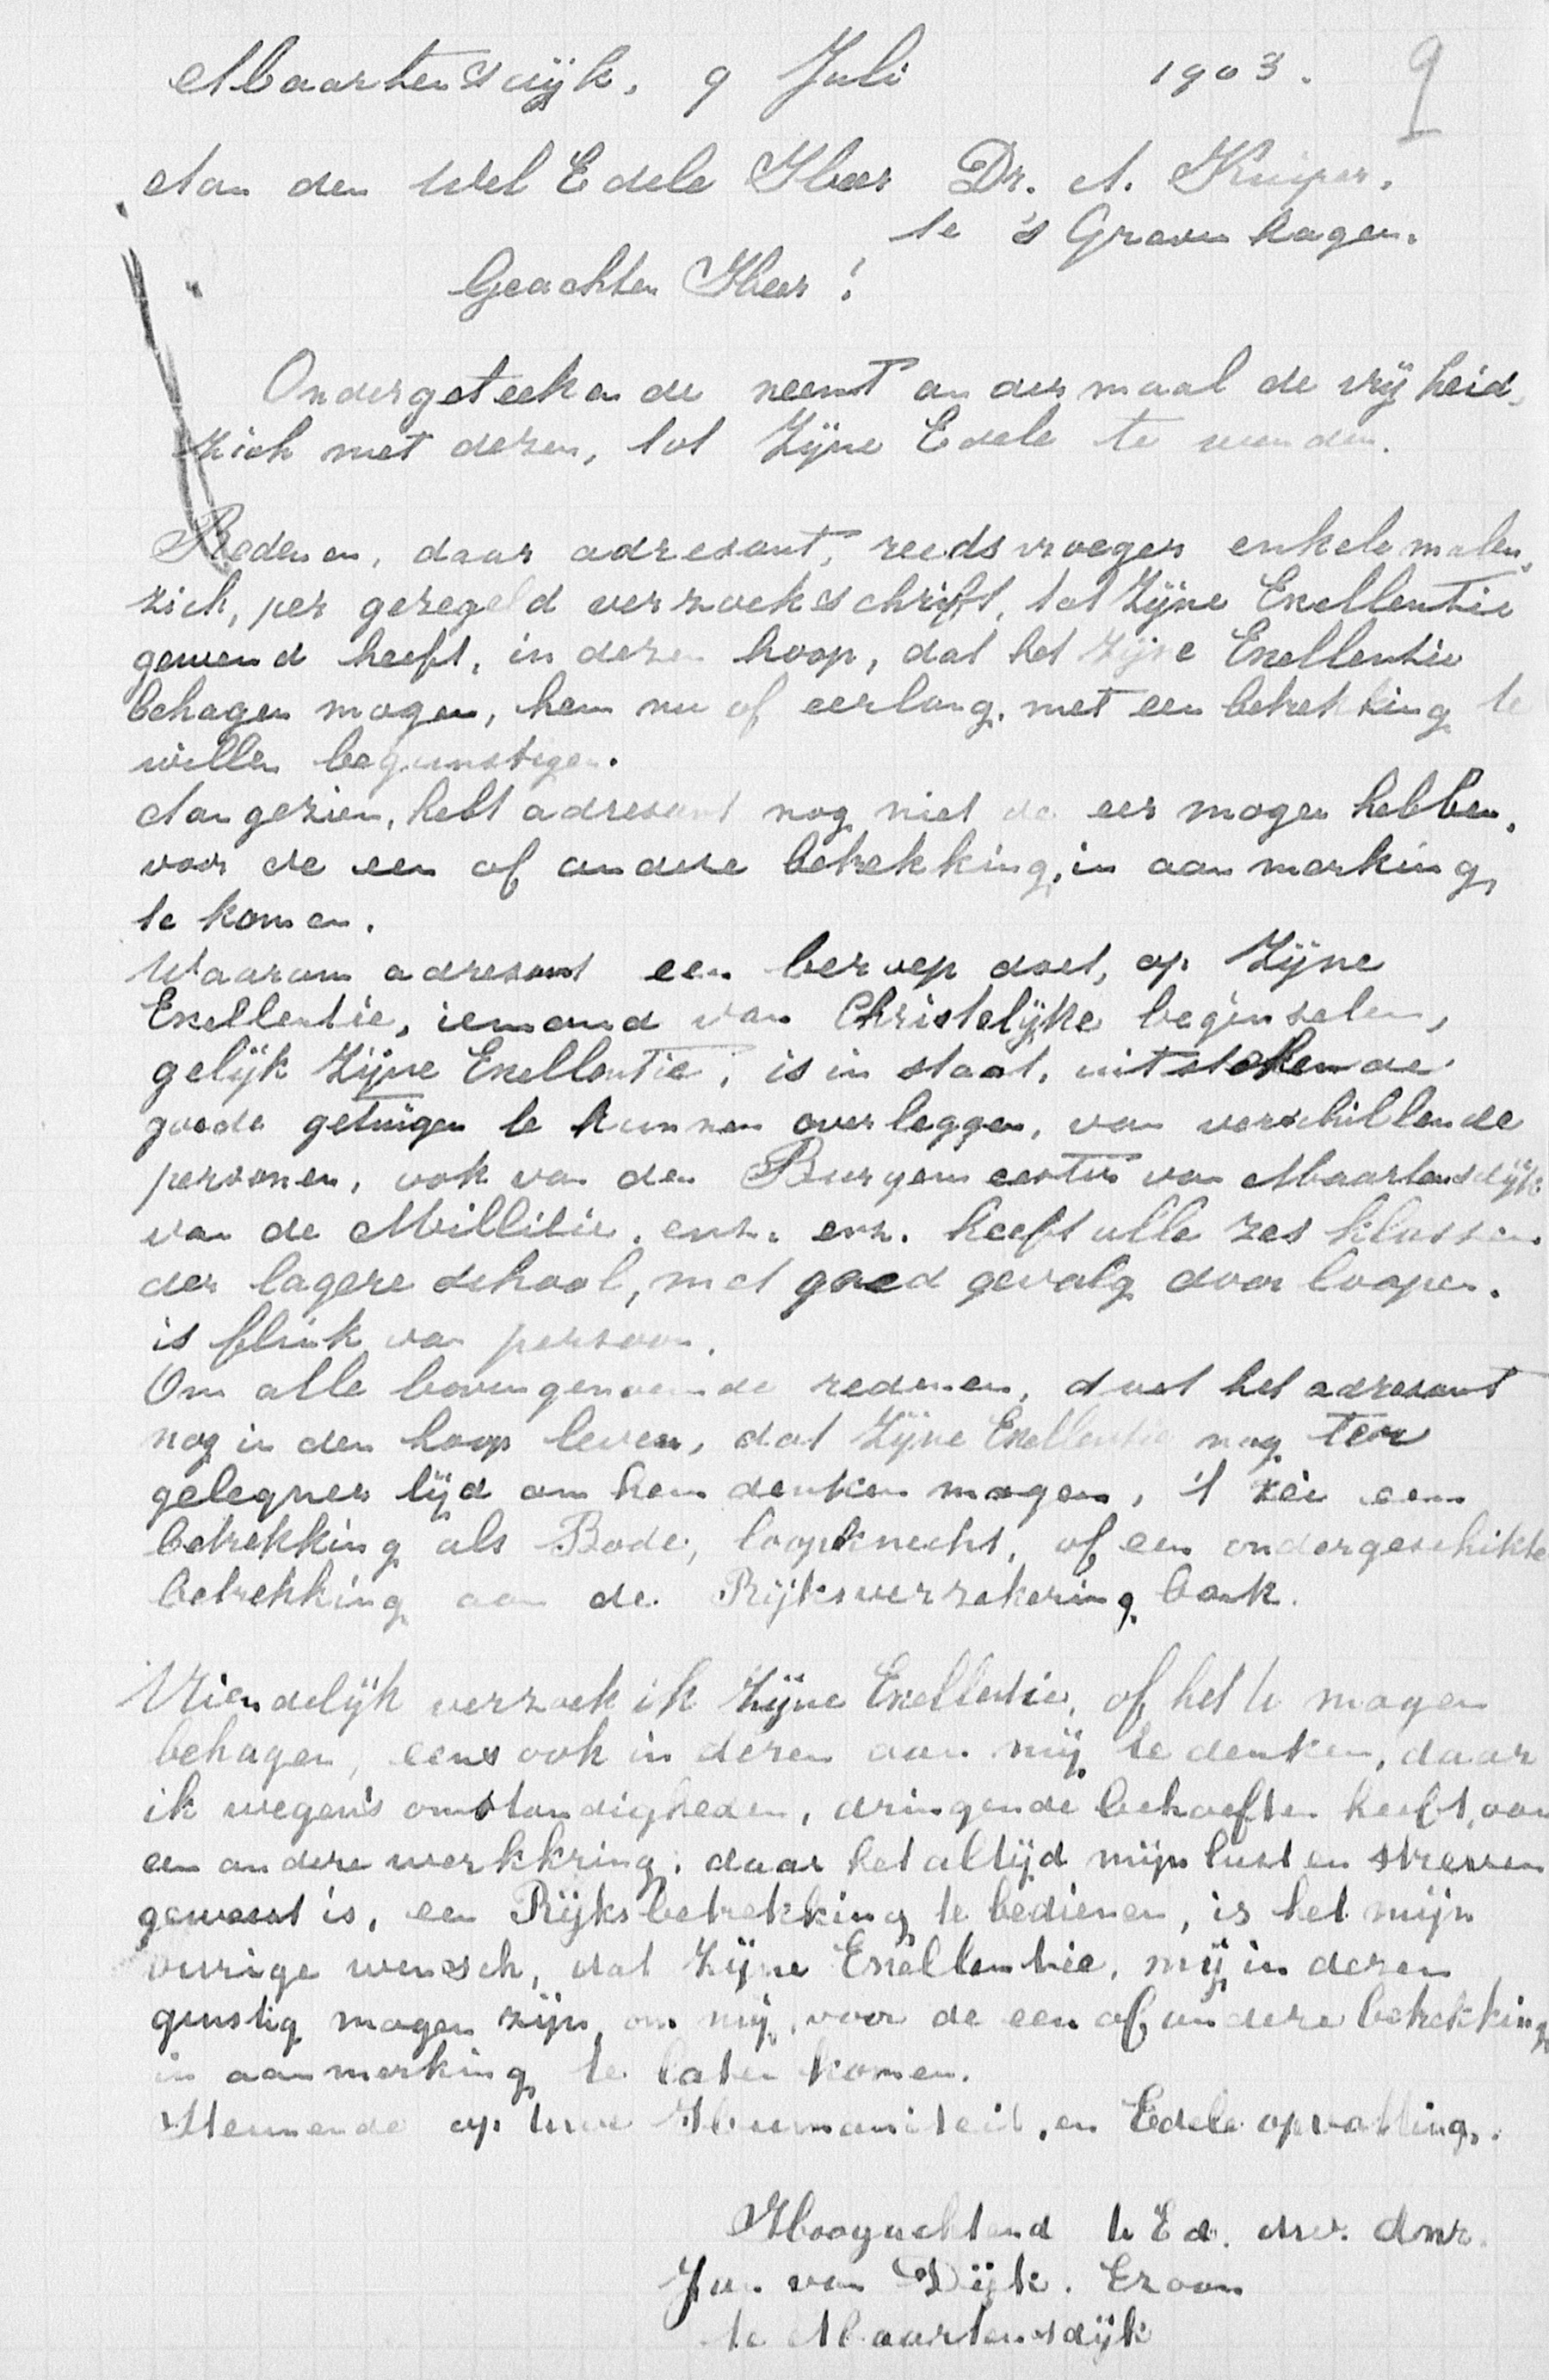 Maartensdijk, 9 Juli 1903. 9
Aan den Wel Edele Heer Dr. A. Kuiper.
te 's Graven hagen.
Geachten Heer!
Ondergeteekende neemt andermaal de vrijheid,
zich met dezen, tot Zijne Edele te wenden.
Redenen, daar adresant, reeds vroeger enkele malen,
zich, per geregeld verzoekschrift, tot Zijne Exellentie
gewend heeft, in dezen hoop, dat het Zijne Exellentie
behagen mogen, hem nu of eerlang, met een betrekking te
willen begunstigen.
Aangezien, hebt adresant nog niet de eer mogen hebben,
voor de een of andere betrekking, in aanmerking
te komen.
Waarom adresant een beroep doet, op Zijne
Exellentie, iemand van Christelijke beginselen,
gelijk Zijne Exellentie, is in staat, uitstekende
goede getuigen te kunnen overleggen, van verschillende
personen, ook van den Burgemeester van Maartensdijk
van de Millitie. enz. enz. heeft alle zes klassen
der lagere school, met goed gevolg doorloopen.
is flink van persoon.
Om alle bovengenoemde redenen, doet het adresant
nog in den hoop leven, dat Zijne Exellentie nog ter
gelegner tijd om hem denken mogen, 't zei een
betrekking als Bode, loopknecht, of een ondergeschikte
betrekking aan de Rijksverzekering bank.
Vriendelijk verzoek ik Zijne Exellentie, of het U mogen
behagen, eens ook in dezen aan mij te denken, daar
ik wegens omstandigheden, dringende behoeften heeft, aan
een andere werkkring, daar het altijd mijn lust en streven
geweest is, een Rijksbetrekking te bedienen, is het mijn
vurige wensch, dat Zijne Exellentie, mij in dezen
gunstig mogen zijn, om mij, voor de een of andere betrekking
in aanmerking te laten komen.
Steunende op Uwe Humaniteit, en Edele opvatting.
Hoogachtend U Ed. dw. dnr.
Jan van Dijk. Ezoon
te Maartensdijk